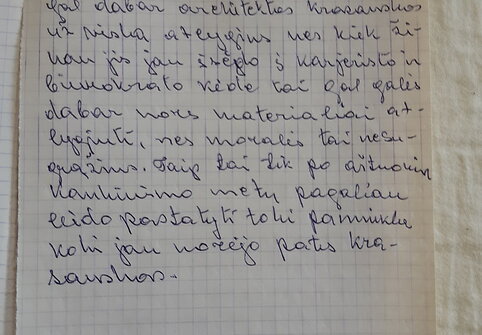 gal dabar architektas Krasauskas
už viską atlygins nes kiek ži-
nau jis jau įsėgo į karjeristo ir
biurokrato kėdę tai gal galės
dabar nors materialiai at-
lyginti, nes moralės tai nesu-
grąžins. Taip tai tik po aštuonių
kankinimo metų pagaliau
leido pastatyti tokį paminklą
kokį jau norėjo pats Kra-
sauskas.